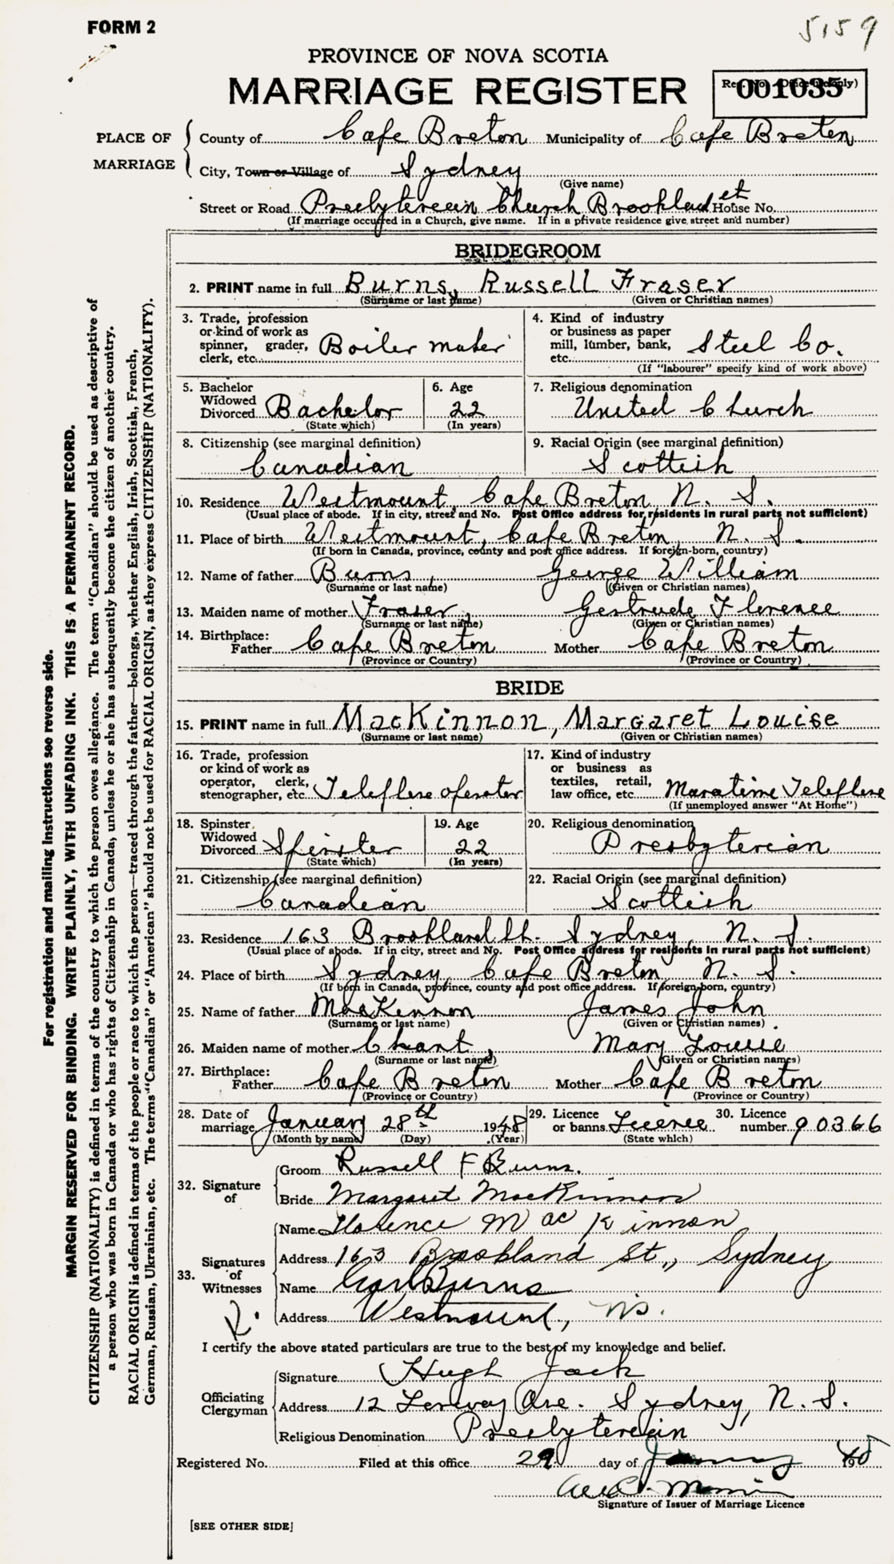 FORM 2
5159
PROVINCE OF NOVA SCOTIA
MARRIAGE REGISTER
001035
PLACE OF MARRIAGE
County of Cape Breton Municipality of Cape Breton
City, Town or Village of Sydney
(Give name)
Street or Road Presbyterein Church Brookland st House No.
(If marriage occured in a Church, give name. If in a private residence give street and number)
BRIDEGROOM
2. PRINT name in full Burns, Russell Fraser
(Surname or last name) (Given or Christian names)
3. Trade, profession or kind of work as spinner, grader, clerk, etc. Boiler maker
4. Kind of industry or business as paper mill, lumber, bank, etc. Steel Co.
(If "labourer" specify kind of work above)
5. Bachelor Widowed Divorced Bachelor
(State which)
6. Age 22
(In years)
7. Religious denomination
United Church
8. Citizenship (see marginal definition)
Canadian
9. Racial Origin (see marginal definition)
Scottish
10. Residence Westmount, Cape Breton N. S.
(Usual place of abode. If in city, street and No. Post Office address for residents in rural parts not sufficient)
11. Place of birth Westmount, Cape Breton, N. S.
(If born in Canada, province, county and post office address. If foreign-born, country)
12. Name of father Burns, George William
(Surname or last name) (Given or Christian names)
13. Maiden name of mother Fraser, Gertrude Florence
(Surname or last name) (Given or Christian names)
14. Birthplace:
Father Cape Breton Mother Cape Breton
(Province or Country) (Province or Country)
BRIDE
15. PRINT name in full MacKinnon, Margaret Louise
(Surname or last name) (Given or Christian names)
16. Trade, profession or kind of work as operator, clerk, stenographer, etc. Telephone operator
17. Kind of industry or business as textiles, retail, law office, etc. Maratime Telephone
(If unemployed answer "At Home")
18. Spinster Widowed Divorced Spinster
(State which)
19. Age 22
(In years)
20. Religious denomination
Presbyterian
21. Citizenship (see marginal definition)
Canadean
22. Racial Origin (see marginal definition)
Scottish
23. Residence 163 Brookland St. Sydney, N. S.
(Usual place of abode. If in city, street and No. Post Office address for residents in rural parts not sufficient)
24. Place of birth Sydney, Cape Breton N. S.
(If born in Canada, province, county and post office address. If foreign-born, country)
25. Name of father MacKinnon James John
(Surname or last name) (Given or Christian names)
26. Maiden name of mother Chant, Mary Louise
(Surname or last name) (Given or Christian names)
27. Birthplace:
Father Cape Breton Mother Cape Breton
(Province or Country) (Province or Country)
28. Date of marriage January 28th 1948
(Month by name) (Day) (Year)
29. Licence or banns Licence
(State which)
30. Licence number 90366
32. Signature of
Groom Russell F Burns.
Bride Margaret MacKinnon
33. Signatures of Witnesses
Name Florence MacKinnon
Address 163 Brookland St., Sydney
Name Carl Burns
Address Westmount, NS.
I certify the above stated particulars are true to the best of my knowledge and belief.
Officiating Clergyman
Signature Hugh Jack
Address 12 Ave. Sydney, N. S.
Religious Denomination Presbyterein
Registered No. Filed at this office 29 day of
Signature of Issuer of Marriage Licence
[SEE OTHER SIDE]
For registration and mailing instructions see reverse side.
MARGIN RESERVED FOR BINDING. WRITE PLAINLY, WITH UNFADING INK. THIS IS A PERMANENT RECORD.
CITIZENSHIP (NATIONALITY) is defined in terms of the country to which the person owes allegiance. The term "Canadian" should be used as descriptive of
a person who was born in Canada or who has rights of Citizenship in Canada, unless he or she has subsequently become the citizen of another country.
RACIAL ORIGIN is defined in terms of the people or race to which the person—traced through the father—belongs, whether English, Irish, Scottish, French,
German, Russian, Ukrainian, etc. The terms "Canadian" or "American" should not be used for RACIAL ORIGIN, as they express CITIZENSHIP (NATIONALITY).